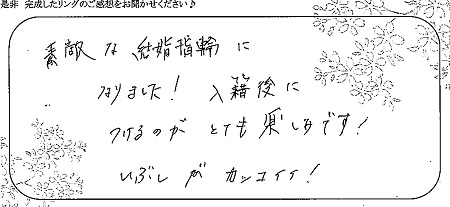 是非 完成したリングのご感想をお聞かせください♪
素敵な結婚指輪に
なりました！ 入籍後に
つけるのが とても楽しみです！
いぶしが カッコイイ！